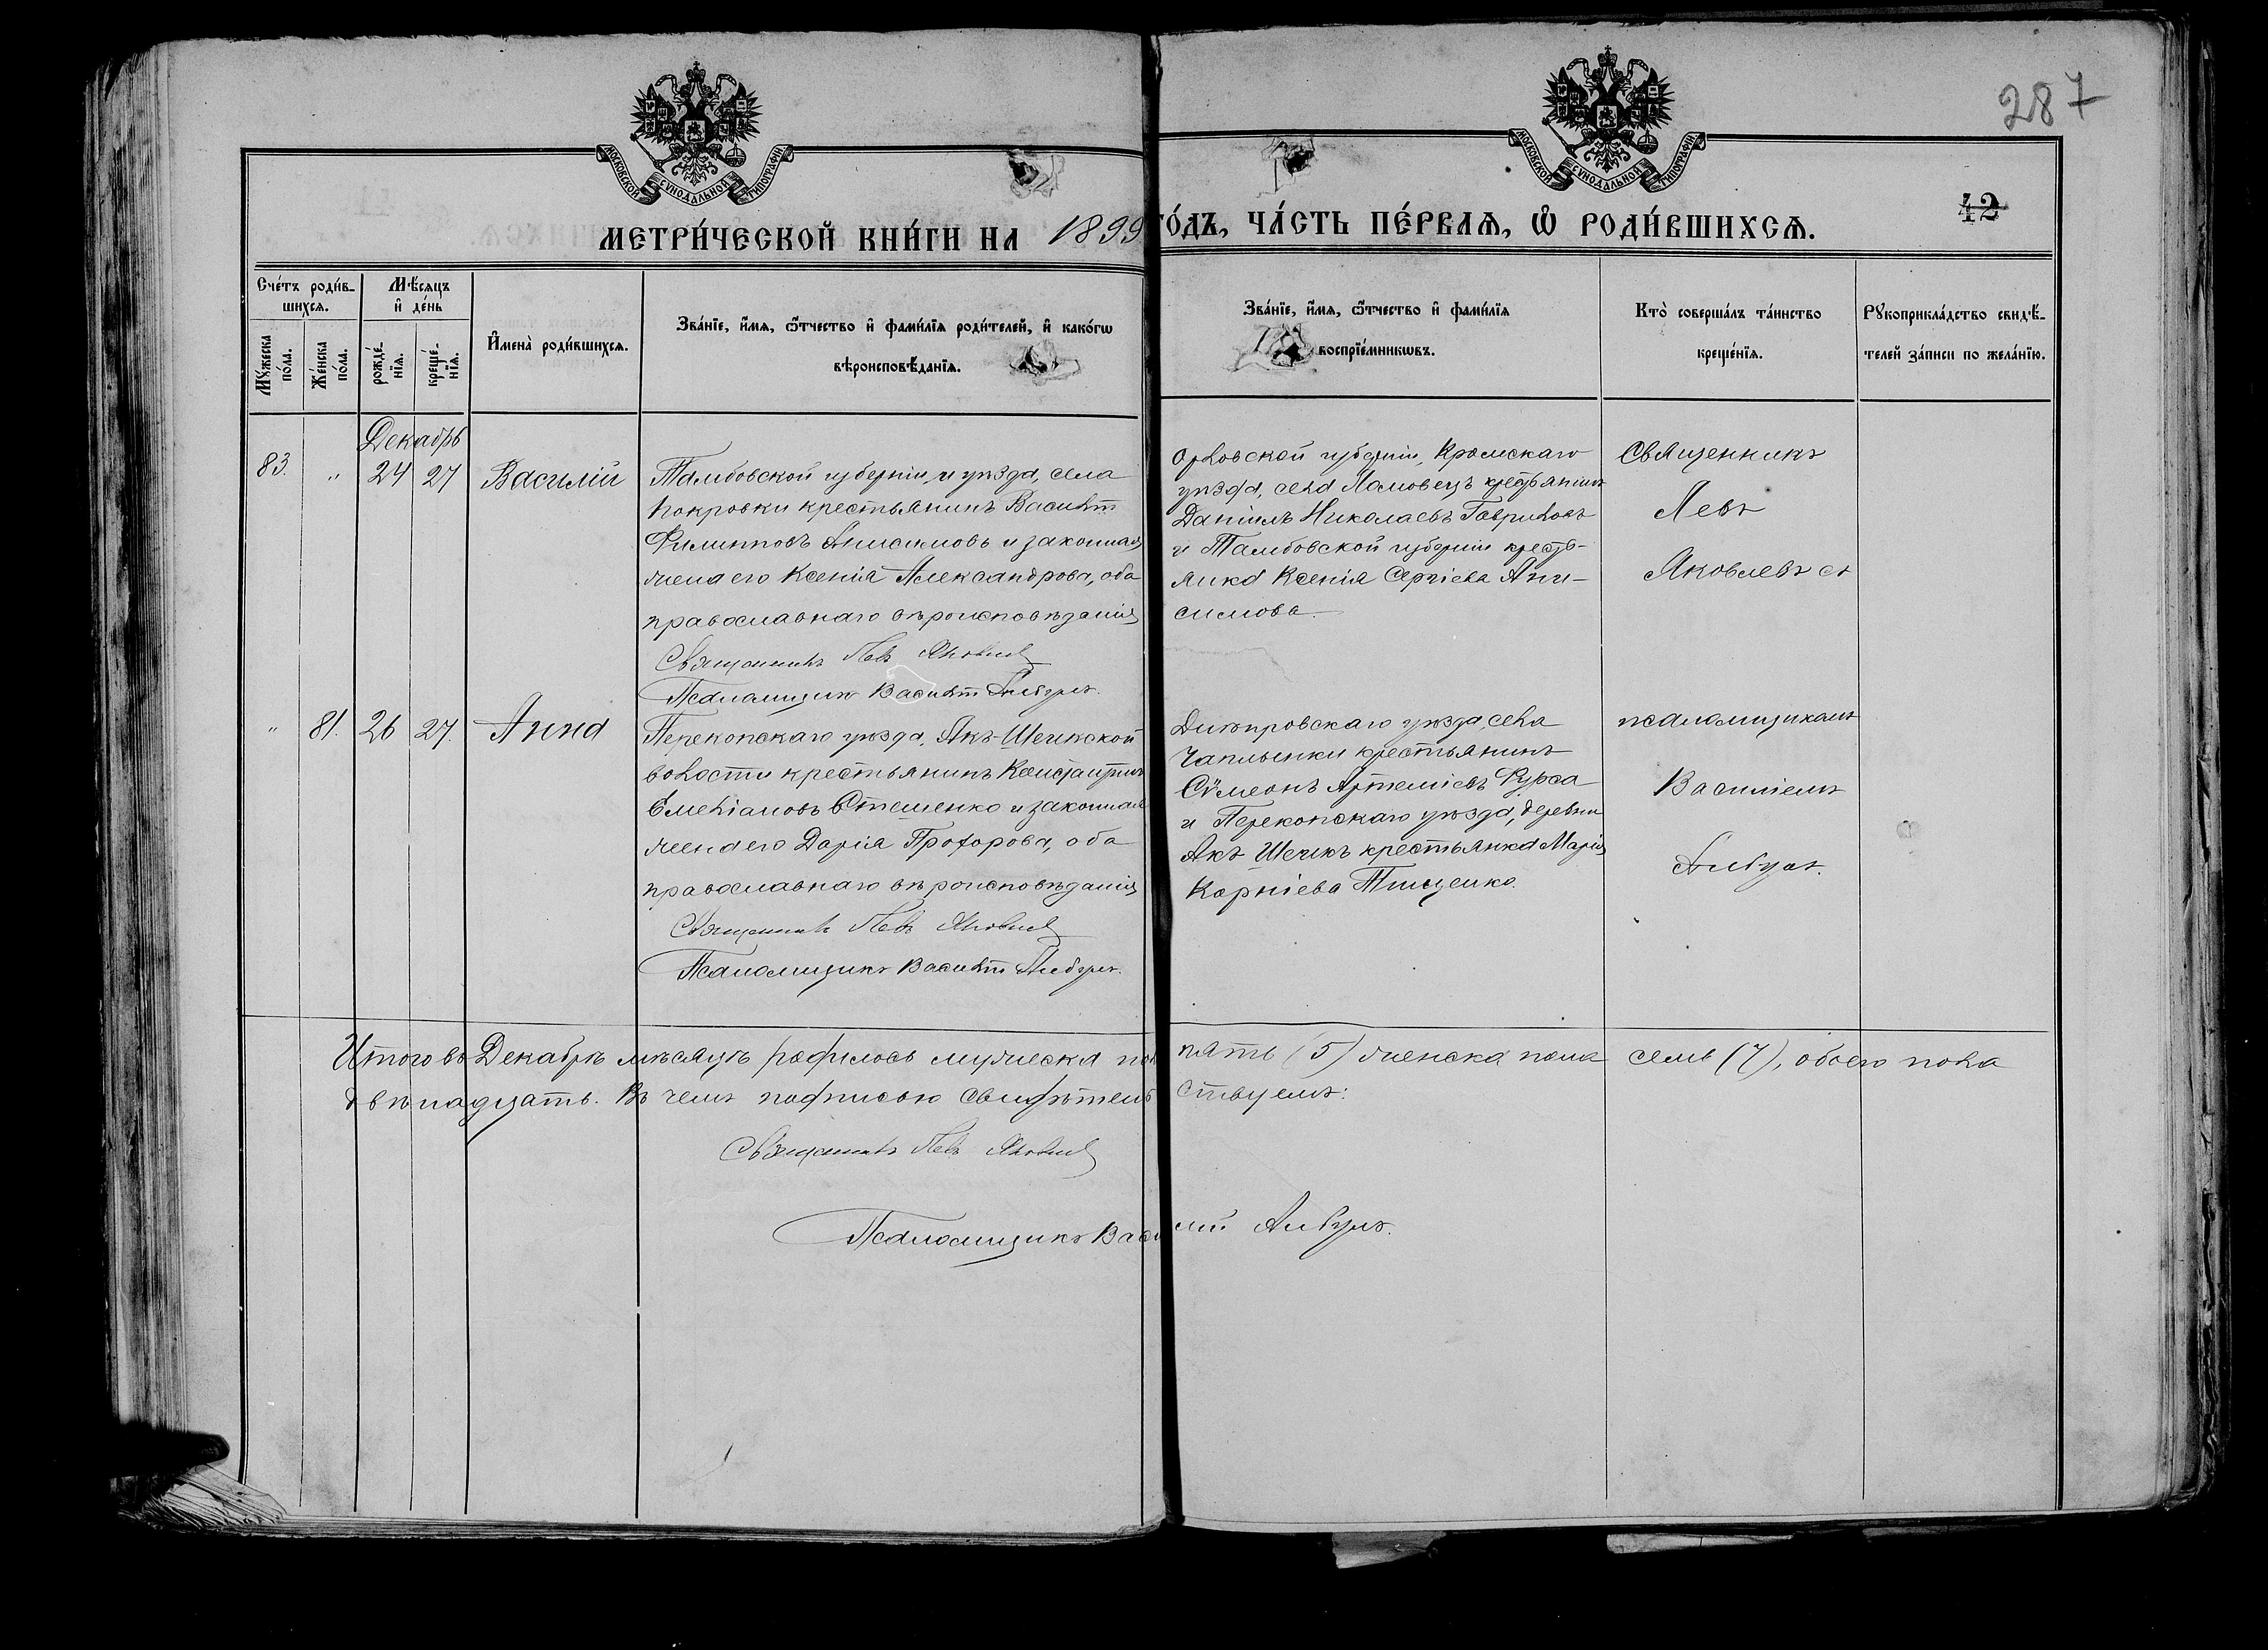 287
МОСКОВСКОЙ СѴНОДАЛЬНОЙ ТИПОГРАФІИ
МОСКОВСКОЙ СѴНОДАЛЬНОЙ ТИПОГРАФІИ
42
МЕТРИ́ЧЕСКОЙ КНИ́ГИ НА 1899 ГО́ДЪ, ЧА́СТЬ ПЕ́РВАѦ, Ѡ҆ РОДИ́ВШИХСѦ.
Сче́тъ роди́в-
шихсѧ.
Мꙋ́жеска по́ла.
Же́нска по́ла.
Мѣ́сѧцъ
и҆ де́нь
рожде́-нїѧ.
креще́-нїѧ.
И҆мена̀ роди́вшихсѧ.
Зва́нїе, и҆́мѧ, ѻ҆́тчество и҆ фами́лїѧ роди́телей, и҆ како́гѡ
вѣроисповѣ́данїѧ.
Зва́нїе, и҆́мѧ, ѻ҆́тчество и҆ фами́лїѧ
воспрїе́мникѡвъ.
Кто̀ соверша́лъ та́инство
креще́нїѧ.
Рꙋкоприкла́дство свидѣ́-
телей за́писи по жела́нїю.
Декабрь
83. " 24 27 Василій
Тамбовской губерніи и уѣзда, села
Покровки крестьянинъ Василій
Филипповъ Анисимовъ и законная
жена его Ксенія Александрова, оба
православнаго вѣроисповѣданія
Священникъ Левъ Яковлевъ
Псаломщикъ Василій Албулъ.
Орловской губерніи, Кромскаго
уѣзда, села Ломовецъ крестьянинъ
Даніилъ Николаевъ Гавриловъ
и Тамбовской губерніи кресть-
янка Ксенія Сергіева Ани-
симова.
Священникъ
Левъ
Яковлевъ съ
" 81. 26 27. Анна
Перекопскаго уѣзда, Акъ-Шеихской
волости крестьянинъ Константинъ
Емеліановъ Стешенко и законная
жена его Дарія Прохорова, оба
православнаго вѣроисповѣданія
Священникъ Левъ Яковлевъ
Псаломщикъ Василій Албулъ.
Днѣпровскаго уѣзда, села
Чаплынки крестьянинъ
Сѵмеонъ Артеміевъ Фурса
и Перекопскаго уѣзда, деревни
Акъ Шеихъ крестьянка Марія
Корніева Тищенко.
псаломщикомъ
Василіемъ
Албулъ.
Итого въ Декабрѣ мѣсяцѣ родилось мужеска пола пять (5) женска пола семь (7), обоего пола
двѣнадцать. Въ чемъ подписью свидѣтельствуемъ:
Священникъ Левъ Яковлевъ
Псаломщикъ Василій Албулъ.